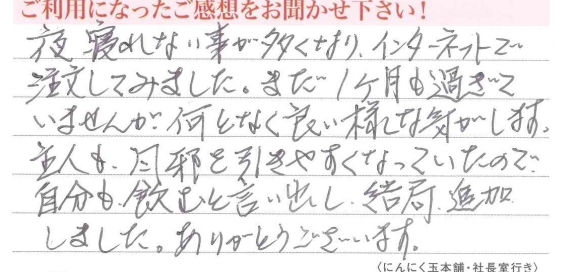 ご利用になったご感想をお聞かせ下さい！
夜寝れない事が多くなり、インターネットで
注文してみました。まだ1ケ月も過ぎて
いませんが何となく良い様な気がします。
主人も、風邪を引きやすくなっていたので
自分も飲むと言い出し、結局、追加
しました。ありがとうございます。
（にんにく玉本舗・社長室行き）